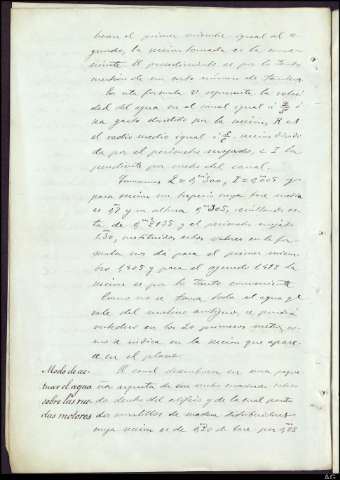 hacen el primer miembro igual al se-
gundo, la sección tomada es la conve-
niente. El procedimiento es por lo tanto
de un corto número de tanteos.
En esta formula V representa la veloci-
dad del agua en el canal igual á Q/S ó
sea gasto dividido por la sección, R es
el radio medio igual á sección dividi-
da por el perimetro mojado, é I la
pendiente por metro del canal.
Tomamos
para sección un trapecio cuya base media
es y su altura resultando es-
ta de y el perimetro mojado
sustituidos estos valores en la for-
mula nos da para el primer miem-
bro 1,405 y para el segundo la
sección es por lo tanto conveniente
Como no se toma toda el agua que
sale del molino antiguo se pondrá
vertedero en los 20 primeros metros co-
mo se indica en la sección que apare-
ce en el plano.
Modo de ac-
tuar el agua
sobre las rue-
das motoras
El canal desemboca en una peque-
ña arqueta de un metro cuadrado coloca-
da dentro del edificio y de la cual parten
dos canalillos de madera distribuidores
cuya sección es de 0,20 de base por